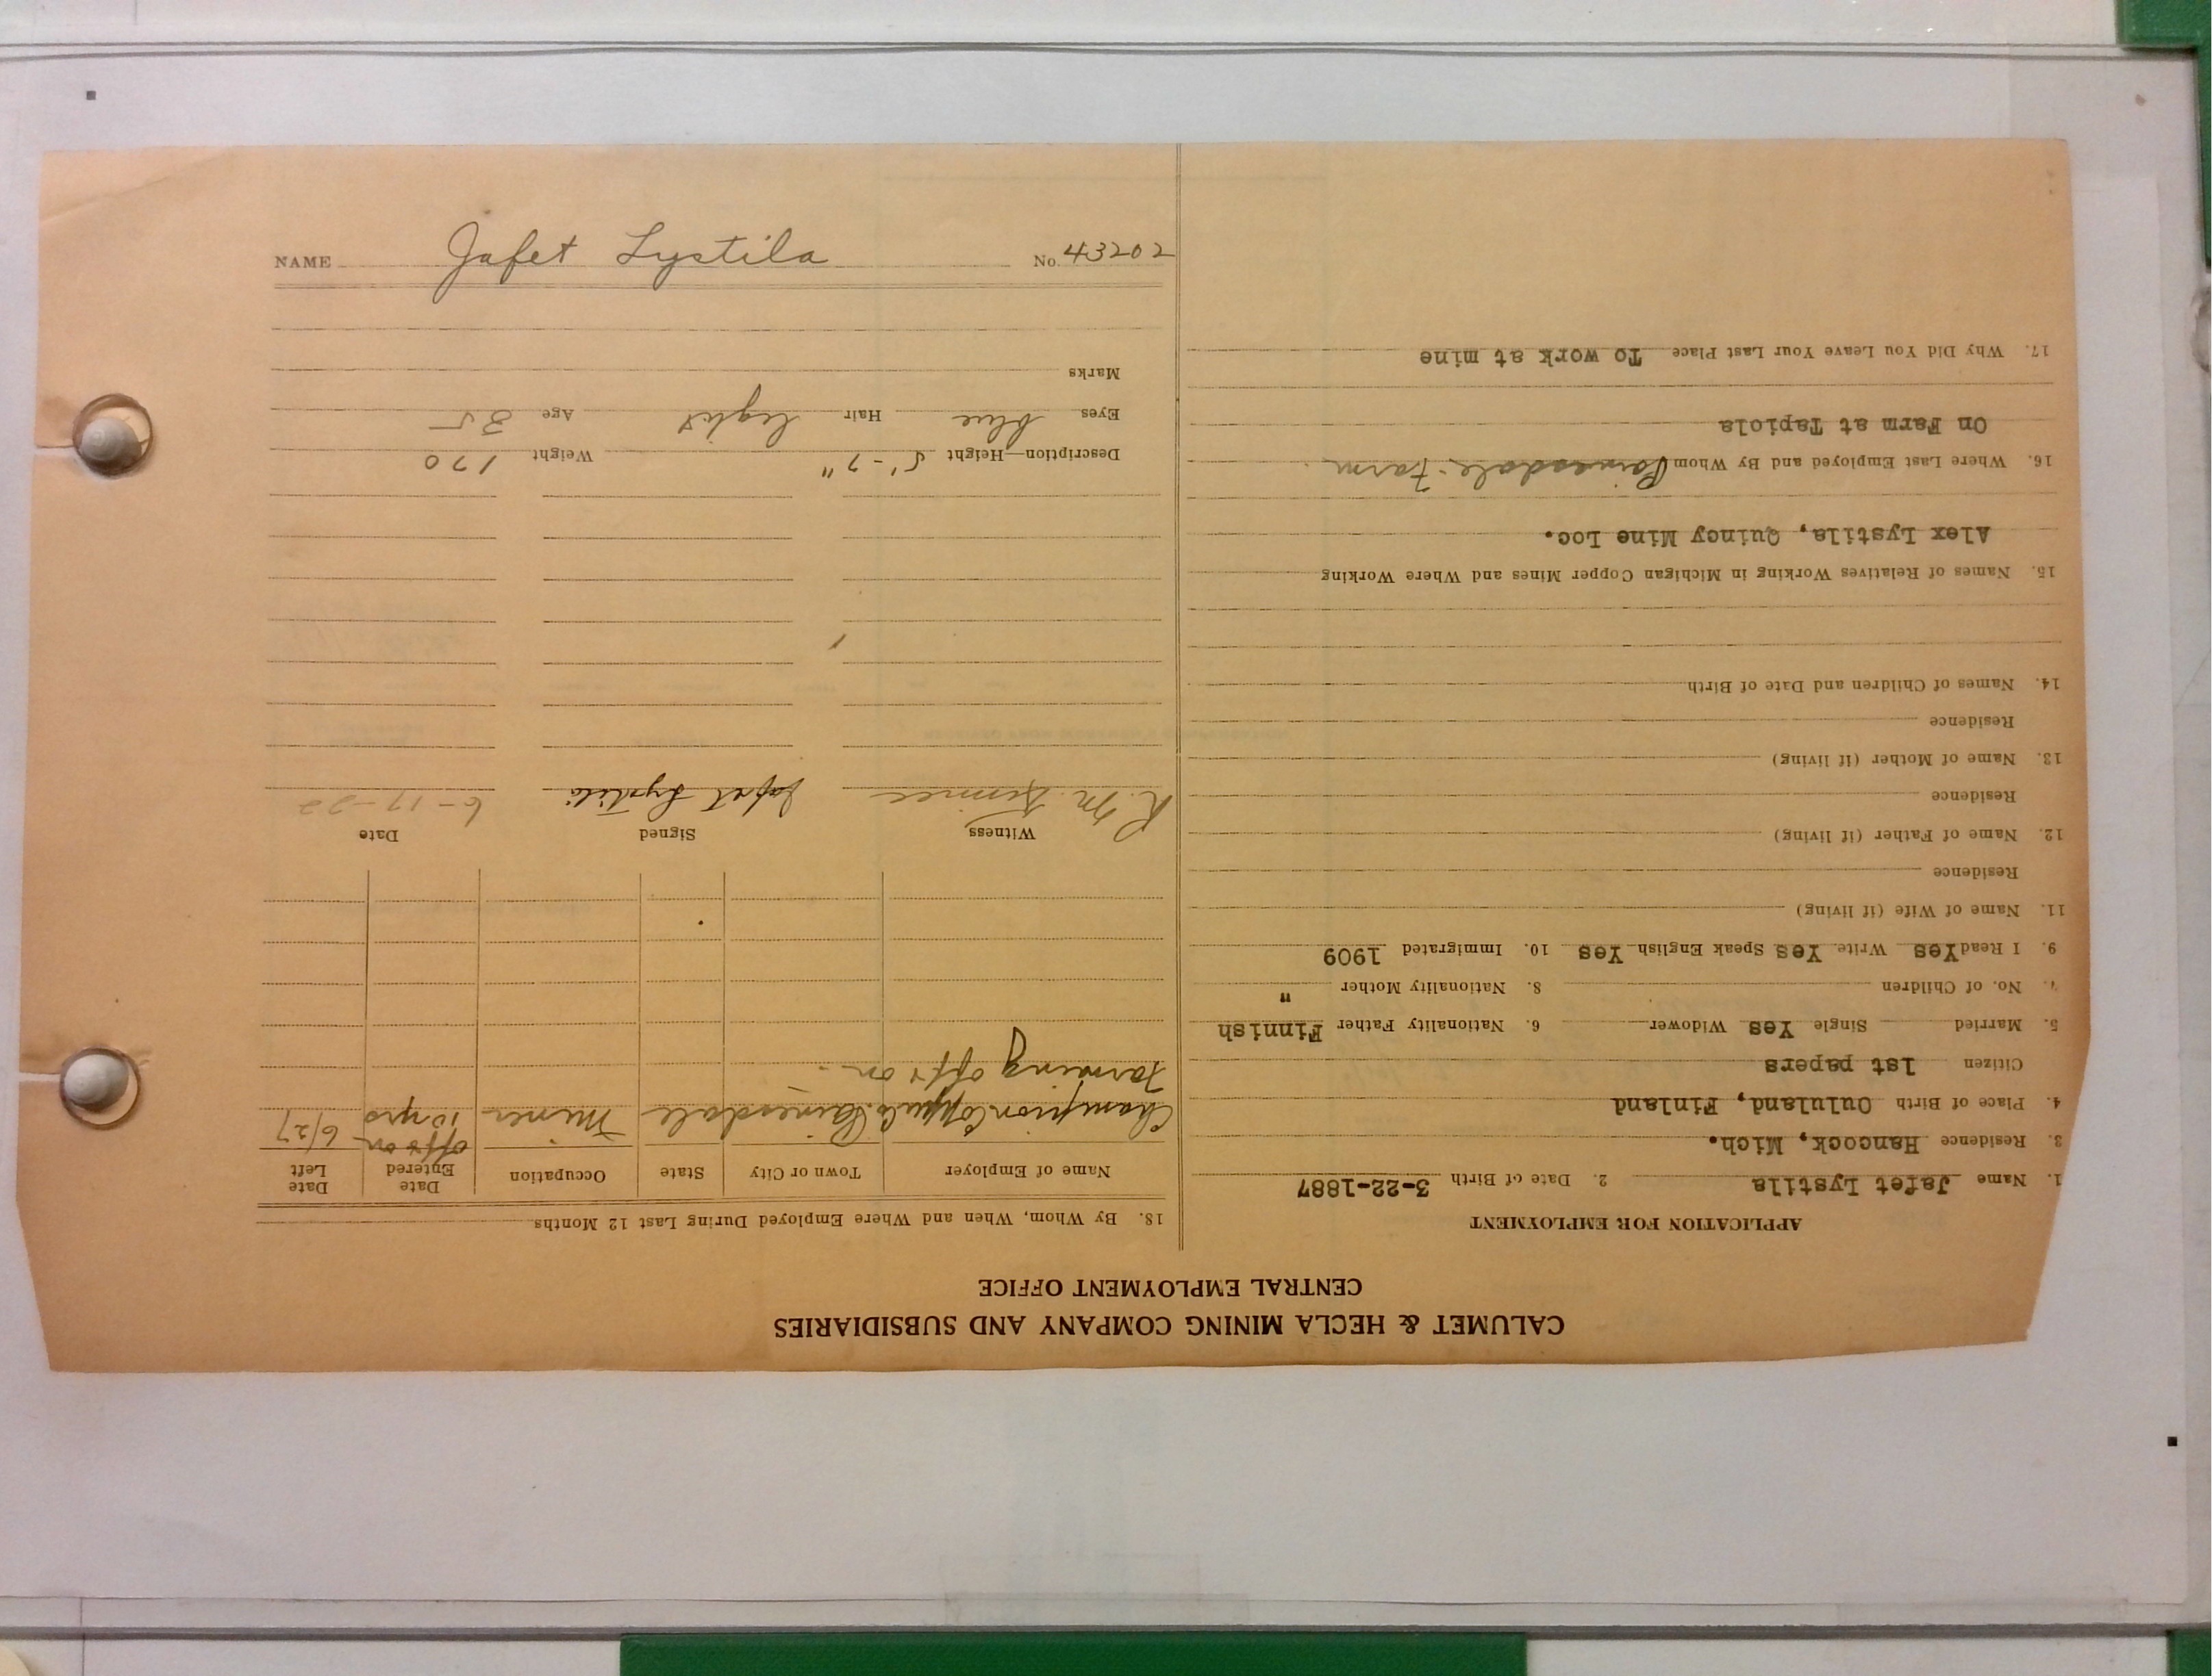 CALUMET & HECLA MINING COMPANY AND SUBSIDIARIES
CENTRAL EMPLOYMENT OFFICE
APPLICATION FOR EMPLOYMENT
1. Name Jafet Lystila 2. Date of Birth 3-22-1887
3. Residence Hancock, Mich.
4. Place of Birth Oululand, Finland
Citizen 1st papers
5. Married Single Yes Widower 6. Nationality Father Finnish
7. No. of Children 8. Nationality Mother "
9. I Read Yes Write Yes Speak English Yes 10. Immigrated 1909
11. Name of Wife (if living)
Residence
12. Name of Father (if living)
Residence
13. Name of Mother (if living)
Residence
14. Names of Children and Date of Birth
15. Names of Relatives Working in Michigan Copper Mines and Where Working
Alex Lystila, Quincy Mine Loc.
16. Where Last Employed and By Whom Painesdale - Farm
On Farm at Tapiola
17. Why Did You Leave Your Last Place To work at mine
18. By Whom, When and Where Employed During Last 12 Months
Name of Employer Town or City State Occupation Date Entered Date Left
Champion Copper Co. Painesdale Miner off & on 10 yrs 6/27
Farming off & on.
Witness Signed Date
R. M. Jafet Lystila
Description—Height 5'-7" Weight 170
Eyes blue Hair light Age 35
Marks
NAME Jafet Lystila No. 43202